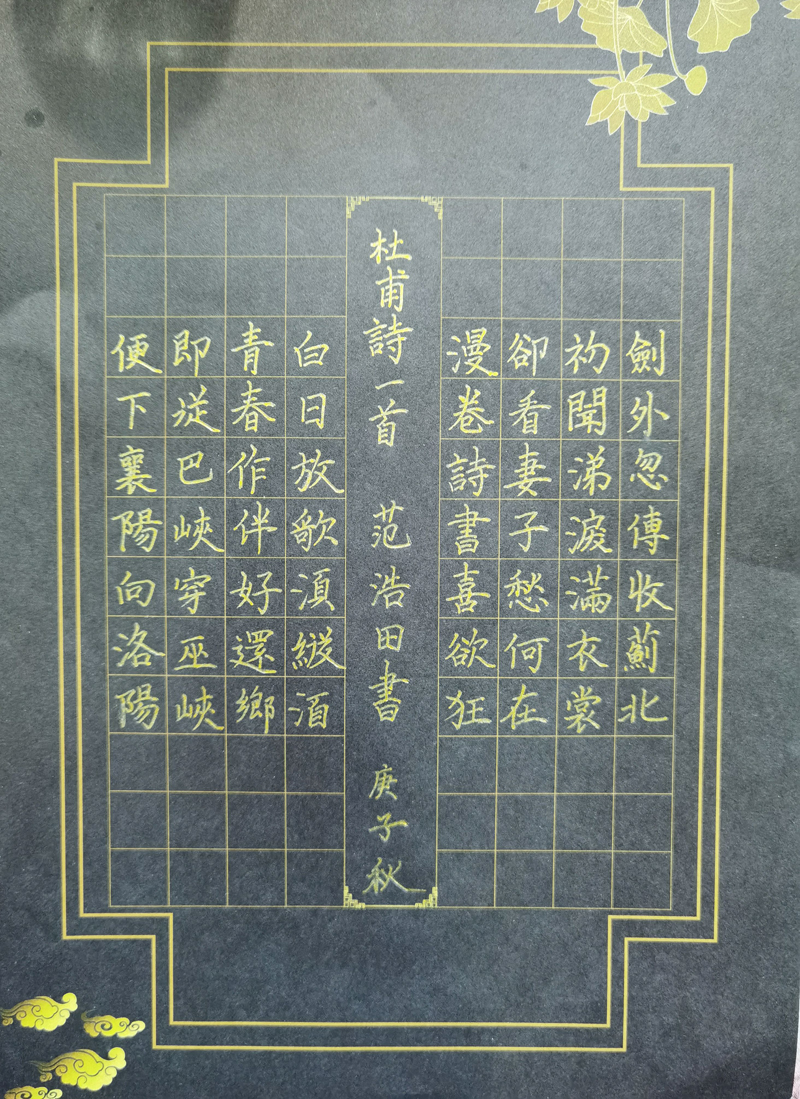 劍外忽傳收薊北
初聞涕淚滿衣裳
卻看妻子愁何在
漫卷詩書喜欲狂
杜甫詩一首 范浩田書 庚子秋
白日放歌湏縱酒
青春作伴好還鄉
即從巴峽穿巫峽
便下襄陽向洛陽